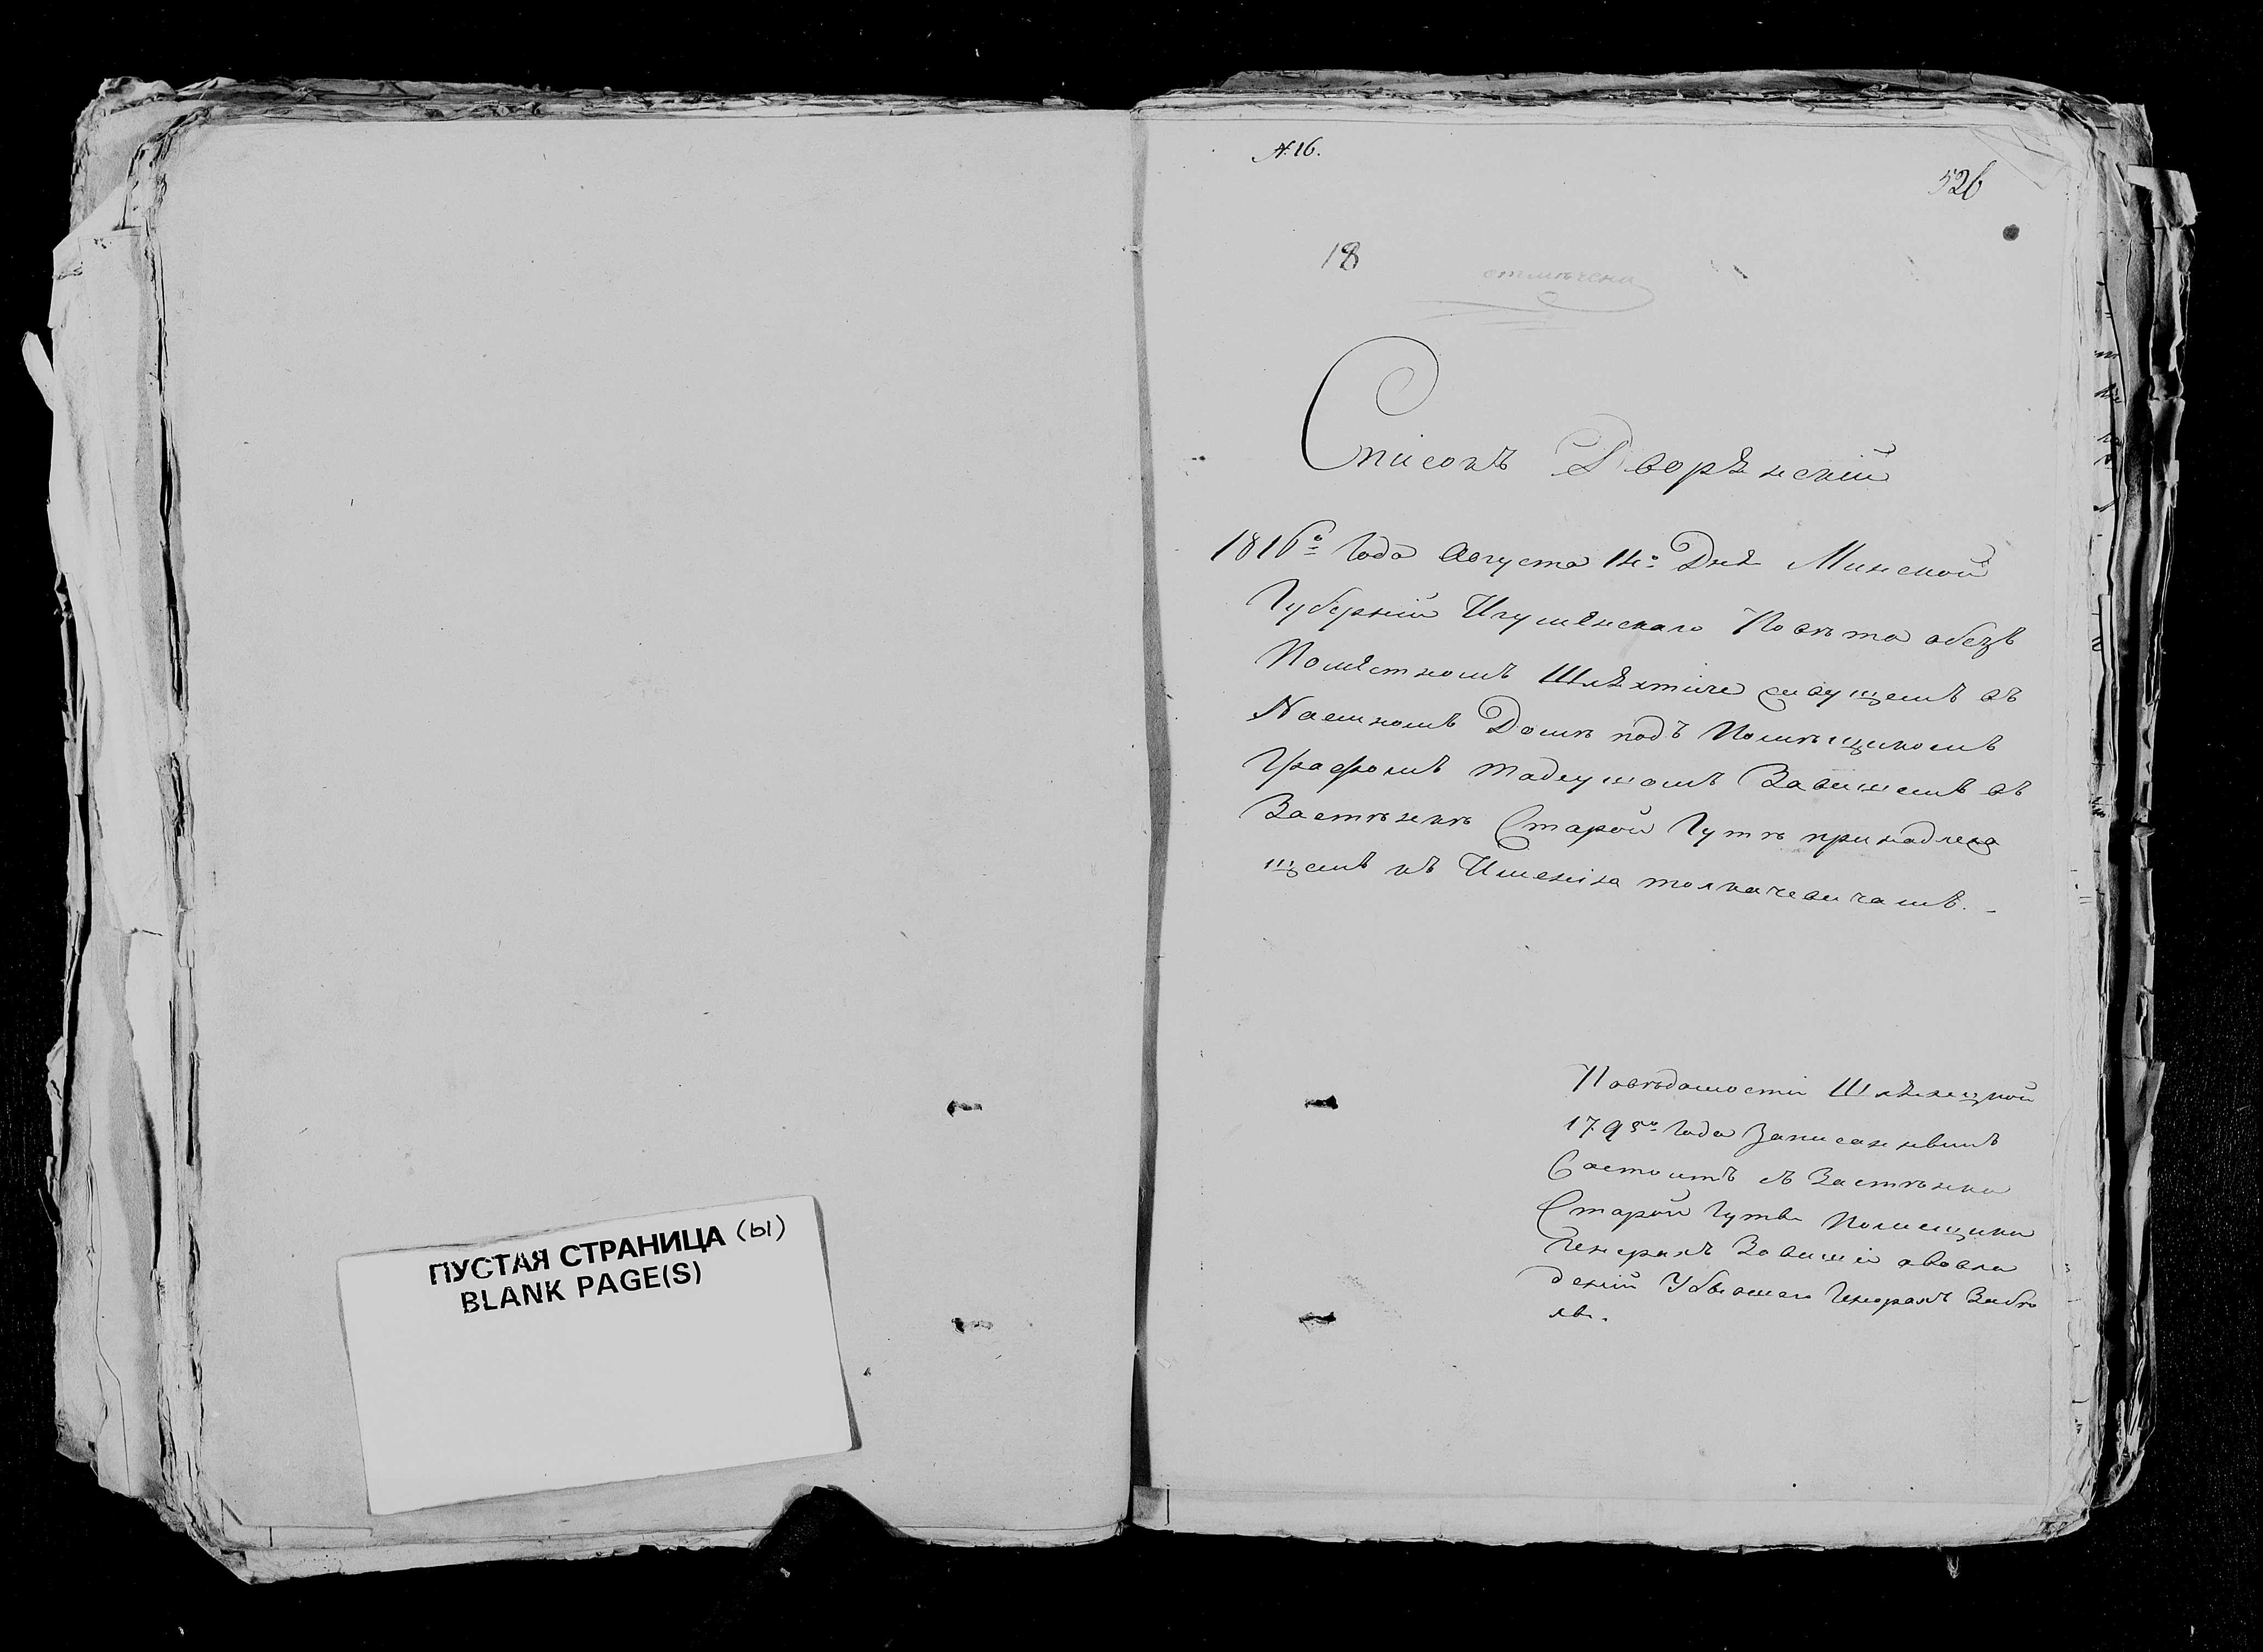 ПУСТАЯ СТРАНИЦА (Ы)
BLANK PAGE(S)
№ 16.
526
18
отмѣчена
Список Дворѣнскій
1816го Года Августа 14о Днѣ Минской
Губерніи Игумѣнскаго Повѣта обезъ
Помѣстномъ Шлѣхтиче живущемъ въ
Наемномъ Доме подъ Помѣщикомъ
Графомъ Тадеушомъ Завишемъ въ
Застѣнкѣ Старой Гутѣ принадлежа
щемъ къ Именію толкачевичамъ.
Поведомости Шлѣхецкой
1795го Года Записаннымъ
Состоитъ въ Застѣнки
Старой Гуты Помещика
Генералъ Завиши
деній Убывшего Генералъ
лы.